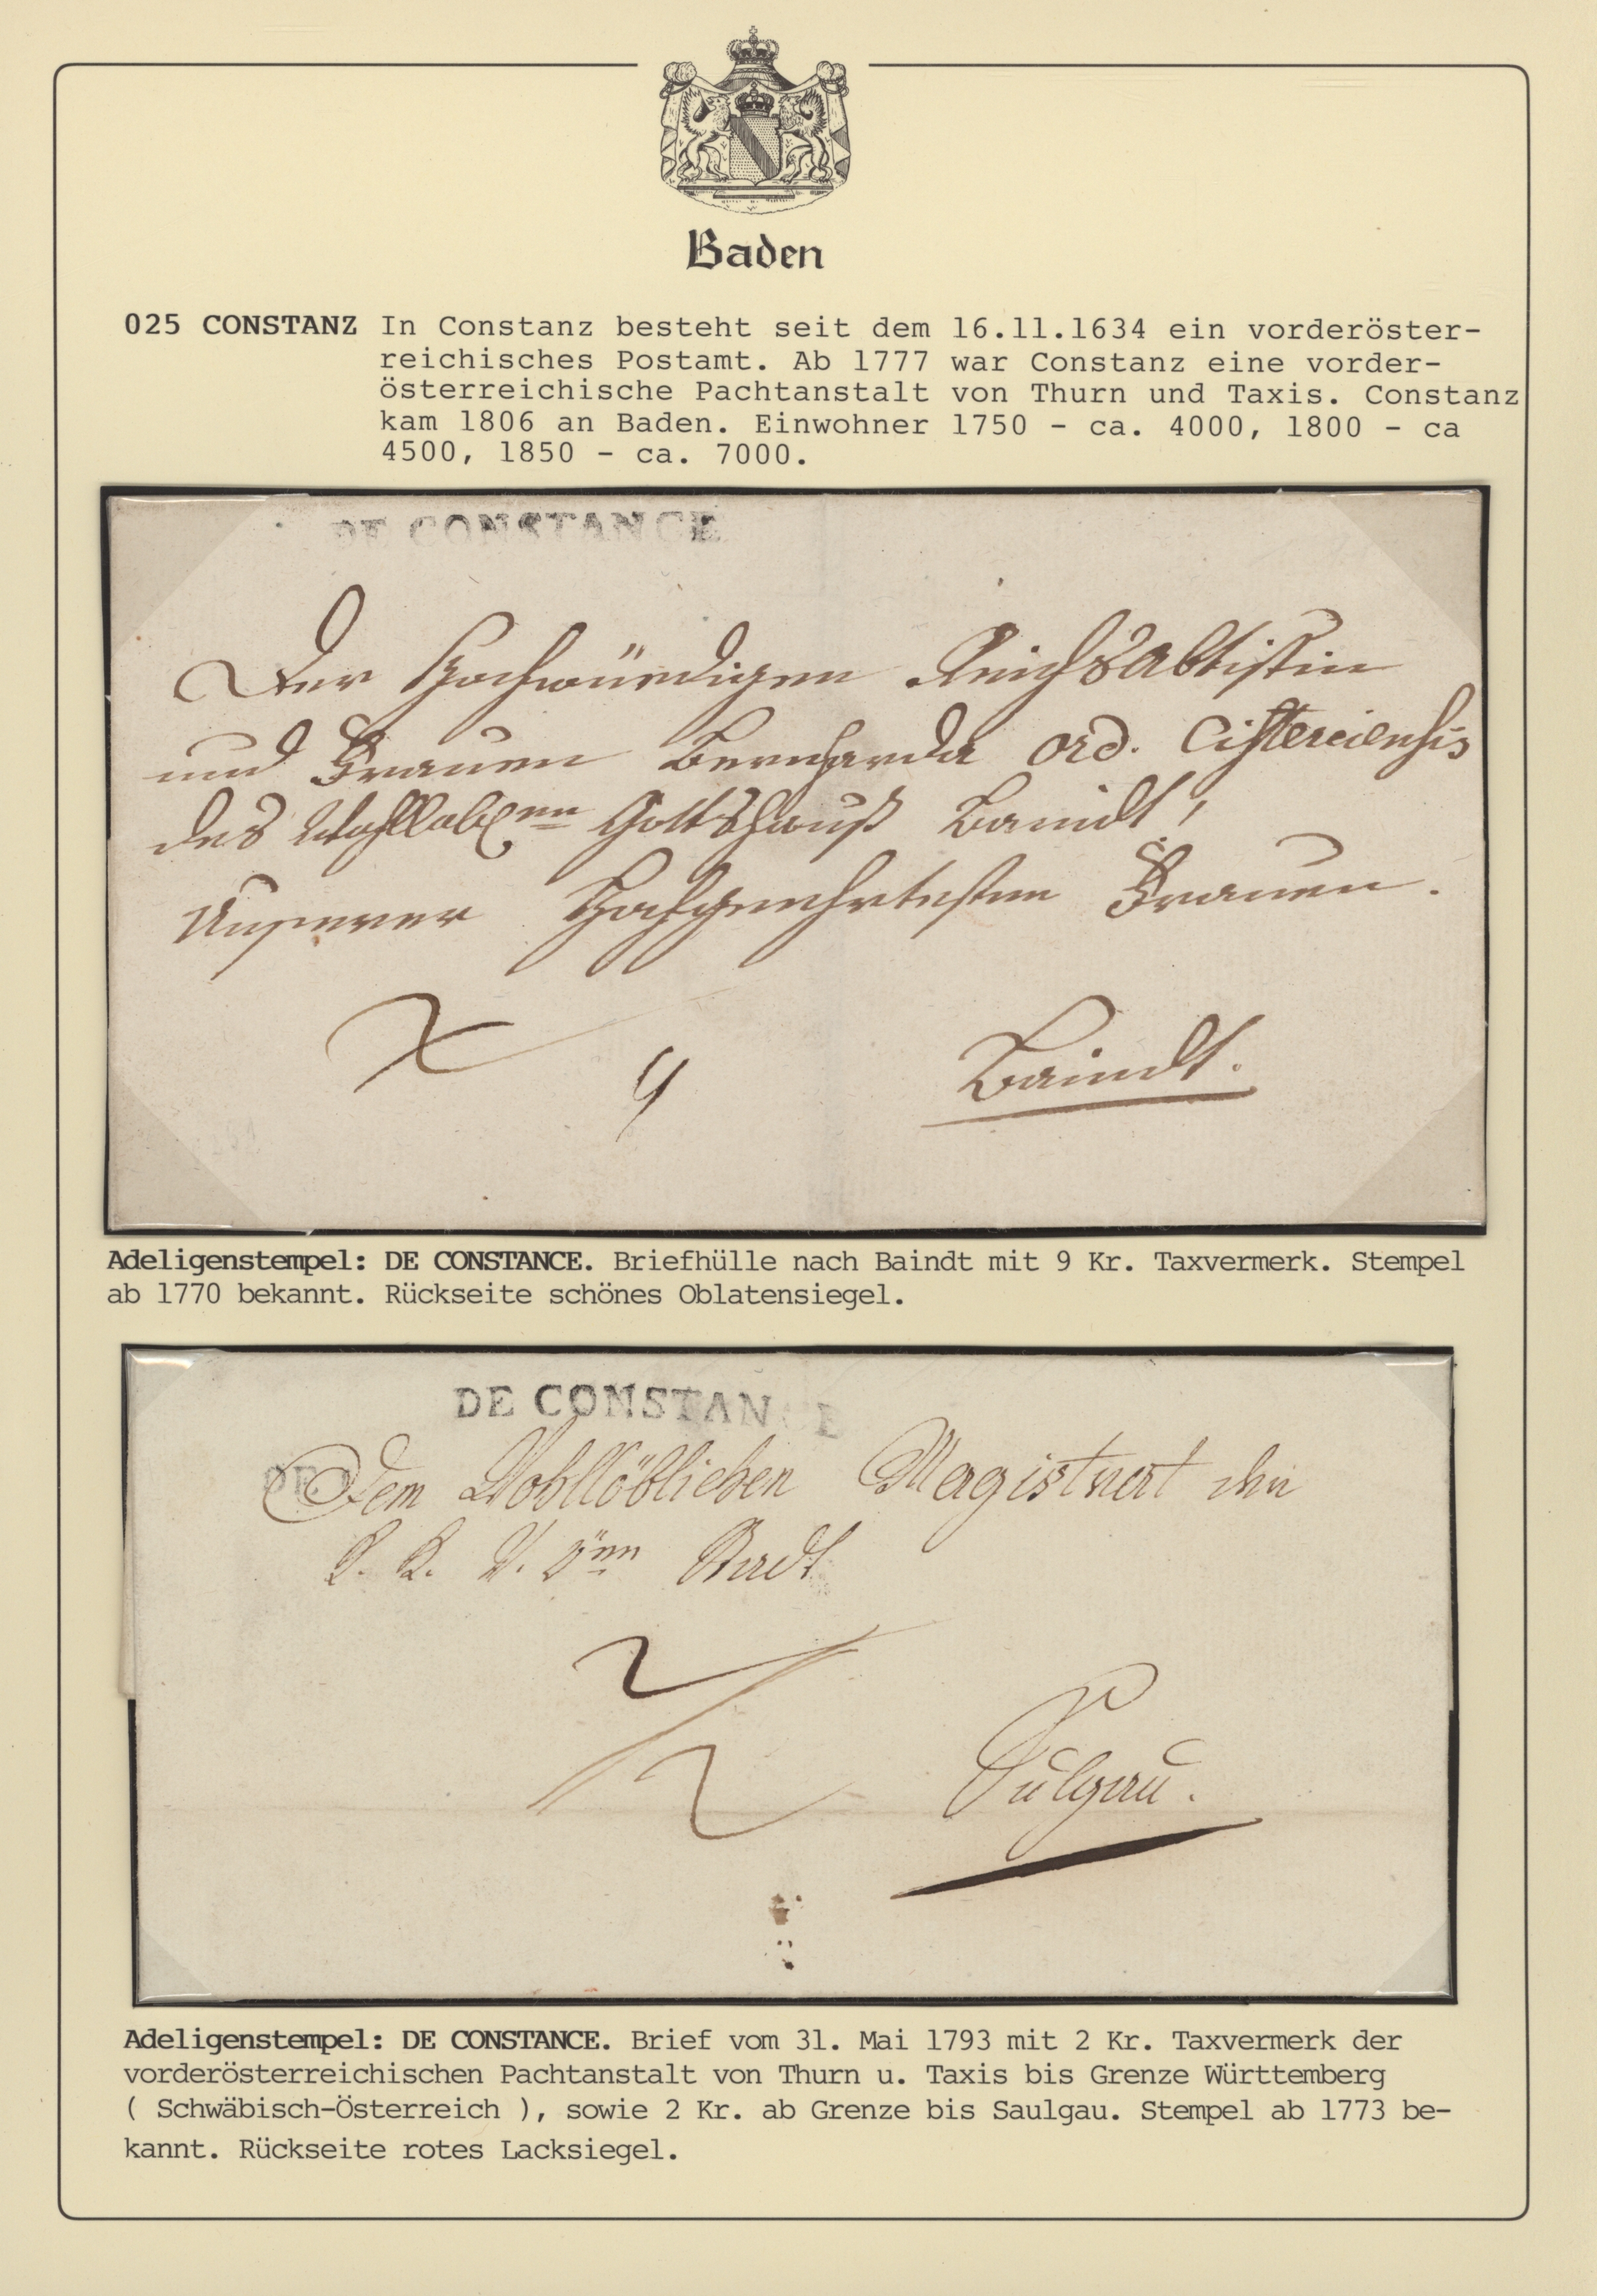 Baden
025 CONSTANZ In Constanz besteht seit dem 16.11.1634 ein vorderöster-
reichisches Postamt. Ab 1777 war Constanz eine vorder-
österreichische Pachtanstalt von Thurn und Taxis. Constanz
kam 1806 an Baden. Einwohner 1750 - ca. 4000, 1800 - ca
4500, 1850 - ca. 7000.
DE CONSTANCE
Der Hochwürdigen ReichsAbtistin
und Frauen Bernharda Ord. Cisterciensis
des Wohllobl.en Gottshauß Baindt,
Unserer Hochgeehrtesten Frauen.
9
Baindt.
Adeligenstempel: DE CONSTANCE. Briefhülle nach Baindt mit 9 Kr. Taxvermerk. Stempel
ab 1770 bekannt. Rückseite schönes Oblatensiegel.
DE CONSTANCE
DE
Dem Wohllöblichen Magistrat der
K. K. V. Ö.en Stadt
2
2
Sulgau.
Adeligenstempel: DE CONSTANCE. Brief vom 31. Mai 1793 mit 2 Kr. Taxvermerk der
vorderösterreichischen Pachtanstalt von Thurn u. Taxis bis Grenze Württemberg
( Schwäbisch-Österreich ), sowie 2 Kr. ab Grenze bis Saulgau. Stempel ab 1773 be-
kannt. Rückseite rotes Lacksiegel.